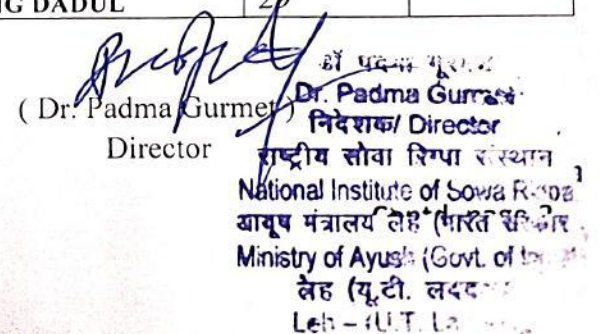 NG DADUL
( Dr. Padma Gurmet )
Director
डॉ पदमा
Dr. Padma Gurmet
निदेशक/ Director
राष्ट्रीय सोवा रिग्पा संस्थान
National Institute of Sowa
आयूष मंत्रालय लेह (भारत
Ministry of Ayush (Govt. of
लेह (यू.टी.
Leh – (U.T.